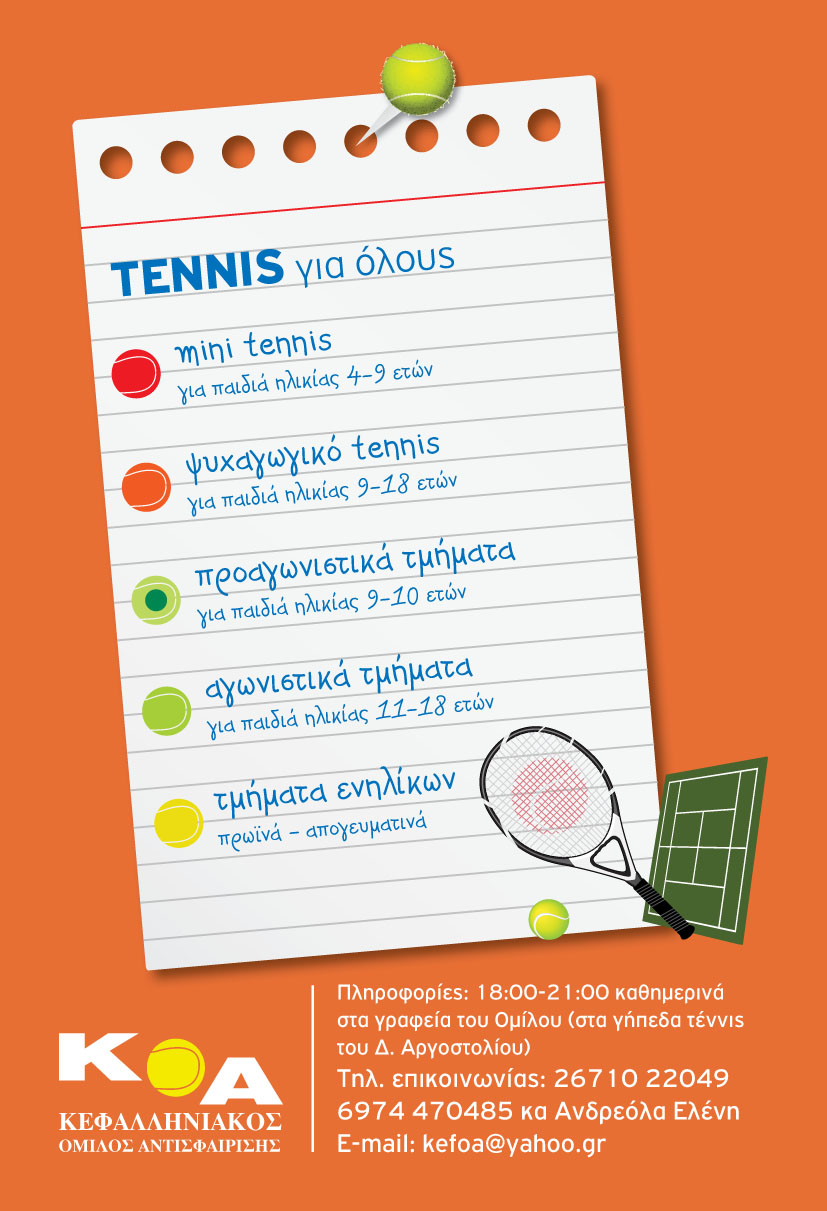 TENNIS για όλους
mini tennis
για παιδιά ηλικίας 4-9 ετών
ψυχαγωγικό tennis
για παιδιά ηλικίας 9-18 ετών
προαγωνιστικά τμήματα
για παιδιά ηλικίας 9-10 ετών
αγωνιστικά τμήματα
για παιδιά ηλικίας 11-18 ετών
τμήματα ενηλίκων
πρωϊνά – απογευματινά
ΚΟΑ
ΚΕΦΑΛΛΗΝΙΑΚΟΣ
ΟΜΙΛΟΣ ΑΝΤΙΣΦΑΙΡΙΣΗΣ
Πληροφορίες: 18:00-21:00 καθημερινά
στα γραφεία του Ομίλου (στα γήπεδα τέννις
του Δ. Αργοστολίου)
Τηλ. επικοινωνίας: 26710 22049
6974 470485 κα Ανδρεόλα Ελένη
E-mail: kefoa@yahoo.gr